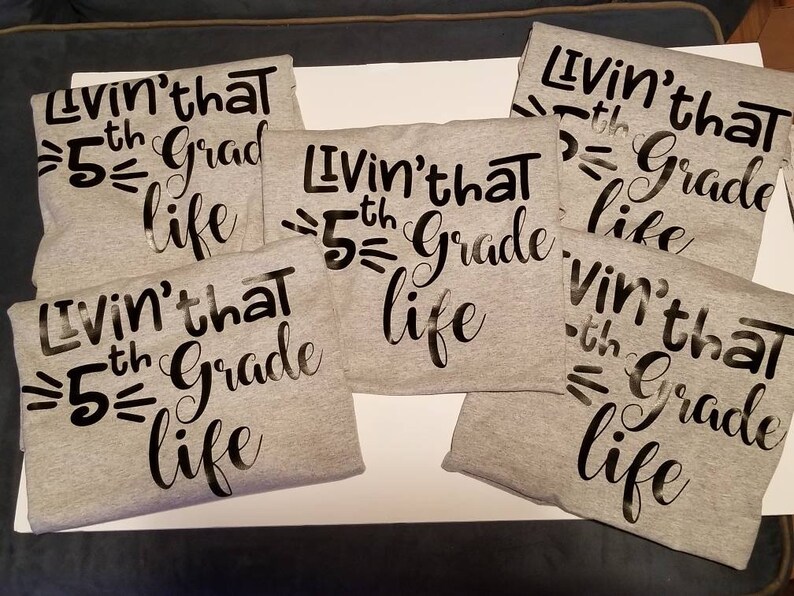 Livin' that
5th Grad
life
Livin' that
5th Grade
life
Livin' that
5th Grade
life
Livin' that
5th Grade
life
ivin' that
th Grade
life